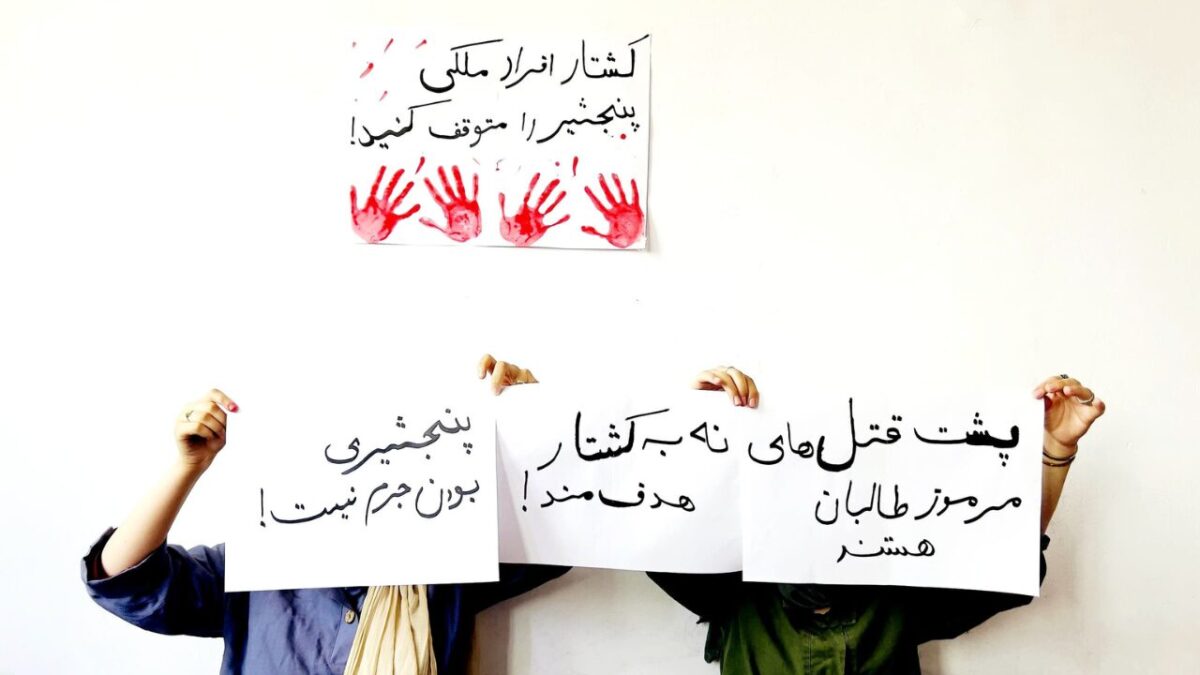 کشتار افراد ملکی
پنجشیر را متوقف کنید!
پشت قتل‌های
مرموز طالبان
هستند
نه به کشتار
هدف مند!
پنجشیری
بودن جرم نیست!